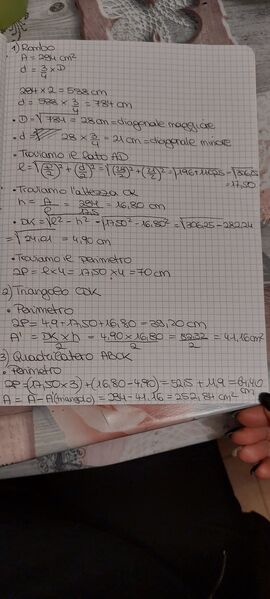 1) Rombo
A = 294 cm²
d = 3/4 × D
294 × 2 = 588 cm
d = 588 × 3/4 = 784 cm
• D = √784 = 28 cm = diagonale maggiore
• d = 28 × 3/4 = 21 cm = diagonale minore
• Troviamo il lato AD
l = √(D/2)² + (d/2)² = √(28/2)² + (21/2)² = √196 + 110,25 = √306,25 = 17,50
• Troviamo l'altezza CK
h = A/l = 294/17,5 = 16,80 cm
• DK = √l² - h² = √17,50² - 16,80² = √306,25 - 282,24
= √24,01 = 4,90 cm
• Troviamo il Perimetro
2P = l × 4 = 17,50 × 4 = 70 cm
2) Triangolo CDK
• Perimetro
2P = 4,9 + 17,50 + 16,80 = 39,20 cm
A' = DK × h/2 = 4,90 × 16,80/2 = 82,32/2 = 41,16 cm²
3) Quadrilatero ABCK
• Perimetro
2P = (17,50 × 3) + (16,80 - 4,90) = 52,5 + 11,9 = 64,40 cm
A = A - A(triangolo) = 294 - 41,16 = 252,84 cm²